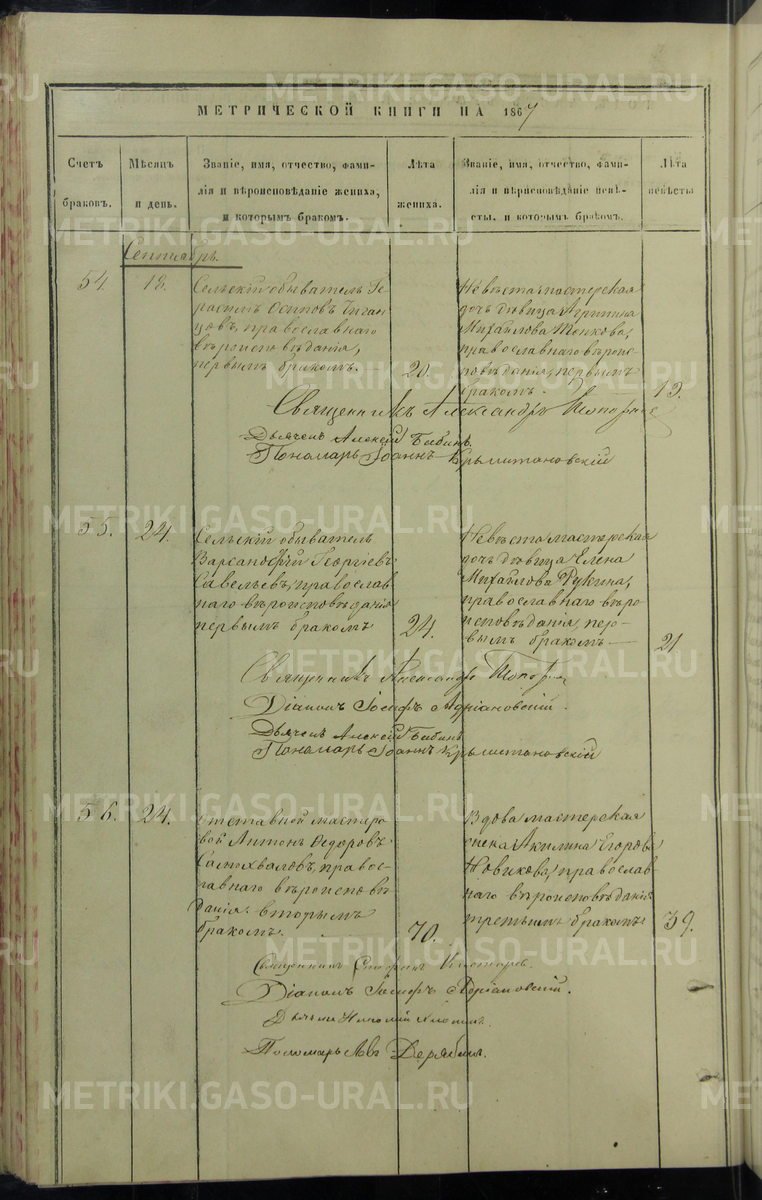 МЕТРИЧЕСКОЙ КНИГИ НА 1867
Счетъ браковъ.
Мѣсяцъ и день.
Званіе, имя, отчество, фами-
лія и вѣроисповѣданіе жениха,
и которымъ бракомъ.
Лѣта жениха.
Званіе, имя, отчество, фами-
лія и вѣроисповѣданіе невѣ-
сты, и которымъ бракомъ.
Лѣта невѣсты
Сентябрь.
54. 18.
Сельскій обыватель Ге-
расимъ Осиповъ Циган-
цовъ, православнаго
вѣроисповѣданія,
первымъ бракомъ.
20.
Невѣста мастерская
дочь дѣвица Агрипина
Михайлова Тонкова,
православнаго вѣроис-
повѣданія, первымъ
бракомъ.
19.
Священникъ Александръ
Дьячекъ Алексій Бабинъ.
Пономарь Іоаннъ Крыштановскій
55. 24.
Сельскій обыватель
Варсанофій Георгіевъ
Савельевъ, православ-
наго вѣроисповѣданія
первымъ бракомъ
24.
Невѣста мастерская
дочь дѣвица Елена
Михайлова Рукина,
православнаго вѣро-
исповѣданія, пер-
вымъ бракомъ
21
Священникъ Александръ
Діаконъ Іосифъ Адріановскій.
Дьячекъ Алексій Бабинъ
Пономарь Іоаннъ Крыштановскій
56. 24.
Отставной мастеро-
вой Антонъ Ѳедоровъ
Самохваловъ, право-
славнаго вѣроисповѣ-
данія вторымъ
бракомъ.
70.
Вдова мастерская
женка Акилина Егорова
Новикова, православ-
наго вѣроисповѣданія
третьимъ бракомъ
39.
Священникъ
Діаконъ Іосифъ Адріановскій.
Пономарь Левъ Дерябинъ.
METRIKI.GASO-URAL.RU